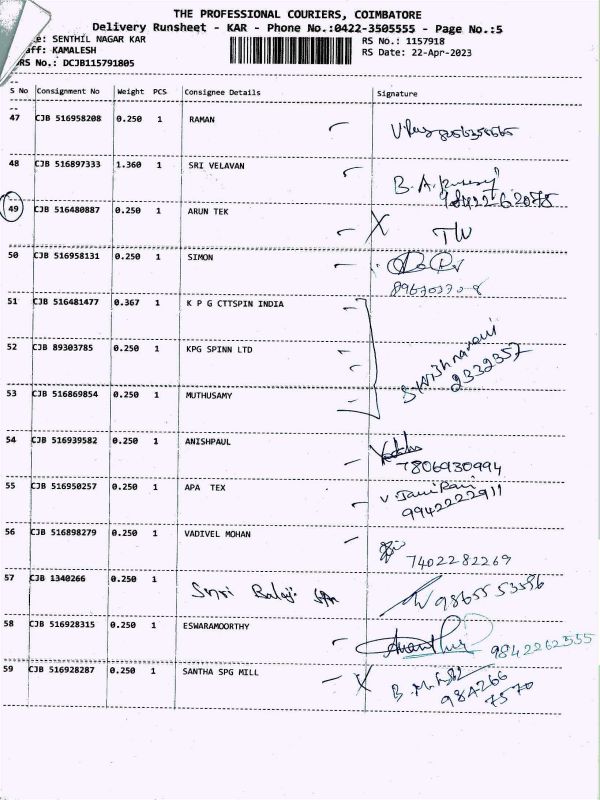 THE PROFESSIONAL COURIERS, COIMBATORE
Delivery Runsheet - KAR - Phone No.:0422-3505555 - Page No.:5
e: SENTHIL NAGAR KAR
RS No.: 1157918
aff: KAMALESH
RS Date: 22-Apr-2023
DRS No.: DCJB115791805
S No Consignment No Weight PCS Consignee Details Signature
47 CJB 516958208 0.250 1 RAMAN
48 CJB 516897333 1.360 1 SRI VELAVAN
B. A.
49 CJB 516480887 0.250 1 ARUN TEK
50 CJB 516958131 0.250 1 SIMON
51 CJB 516481477 0.367 1 K P G CTTSPIN INDIA
52 CJB 89303785 0.250 1 KPG SPINN LTD
2332357
53 CJB 516869854 0.250 1 MUTHUSAMY
54 CJB 516939582 0.250 1 ANISHPAUL
7806930994
55 CJB 516950257 0.250 1 APA TEX
9942222911
56 CJB 516898279 0.250 1 VADIVEL MOHAN
7402282269
57 CJB 1340266 0.250 1 Balaji
58 CJB 516928315 0.250 1 ESWARAMOORTHY
9842262555
59 CJB 516928287 0.250 1 SANTHA SPG MILL
984266
7570